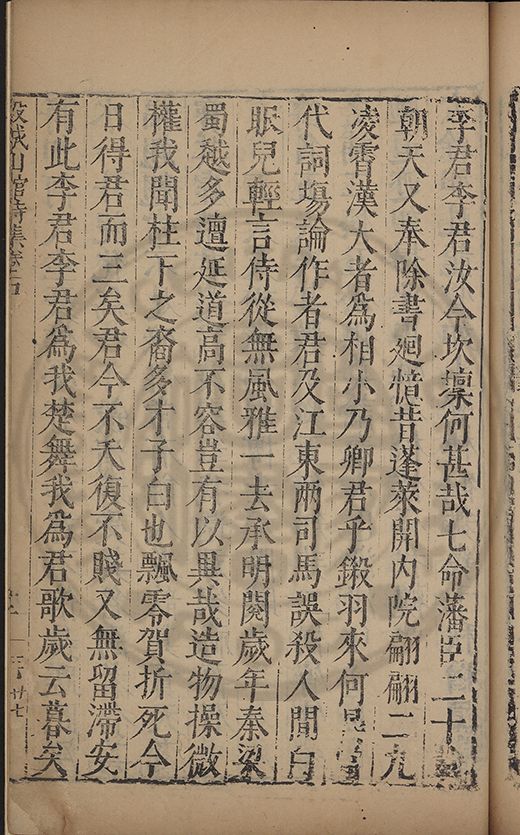 李君李君汝今坎壈何甚哉七命藩臣二十
朝天又奉除書廻憶昔蓬萊開内院翩翩二九
凌霄漢大者爲相小乃卿君乎鍛羽來何
代詞塲論作者君及江東兩司馬誤殺人間白
眼兒輕言侍從無風雅一去承明閱歲年秦梁
蜀越多邅延道高不容豈有以異哉造物操微
權我聞柱下之裔多才子白也飄零賀折死今
日得君而三矣君今不夭復不賤又無留滯安
有此李君李君爲我楚舞我爲君歌歲云暮矣
穀城山館詩集卷
廿七